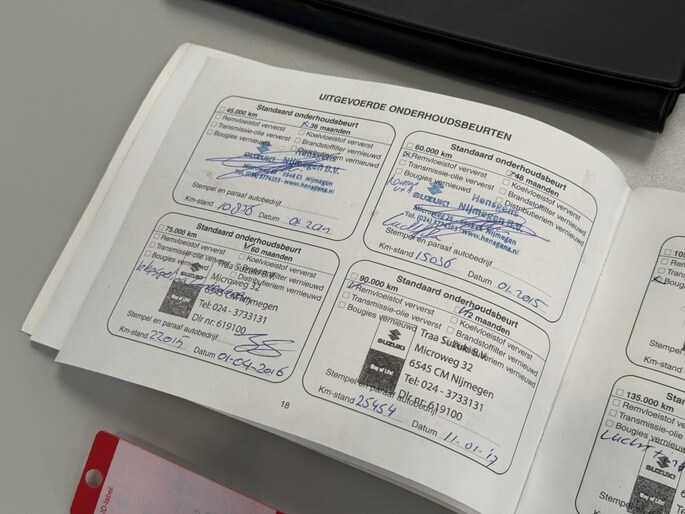 UITGEVOERDE ONDERHOUDSBEURTEN
Standaard onderhoudsbeurt
45.000 km
36 maanden
Remvloeistof ververst
Koelvloeistof ververst
Transmissie-olie ververst
Brandstoffilter vernieuwd
Bougies vernieuwd
Distributieriem vernieuwd
Hensgens
SUZUKI Nijmegen B.V.
Nijmegen
www.hensgens.nl
Stempel en paraaf autobedrijf
Km-stand 10836 Datum
Standaard onderhoudsbeurt
60.000 km
48 maanden
Remvloeistof ververst
Koelvloeistof ververst
Transmissie-olie ververst
Brandstoffilter vernieuwd
Bougies vernieuwd
Distributieriem vernieuwd
Hensgens
SUZUKI Nijmegen B.V.
Microweg
Nijmegen
www.hensgens.nl
Stempel en paraaf autobedrijf
Km-stand 15036 Datum 01-2015
Standaard onderhoudsbeurt
75.000 km
60 maanden
Remvloeistof ververst
Koelvloeistof ververst
Transmissie-olie ververst
Brandstoffilter vernieuwd
Bougies vernieuwd
Distributieriem vernieuwd
Traa Suzuki B.V.
SUZUKI
Microweg 32
6545 CM Nijmegen
Way of Life!
Tel: 024 - 3733131
Dlr nr: 619100
Stempel en paraaf autobedrijf
Km-stand 22015 Datum 01-04-2016
Standaard onderhoudsbeurt
90.000 km
72 maanden
Remvloeistof ververst
Koelvloeistof ververst
Transmissie-olie ververst
Brandstoffilter vernieuwd
Bougies vernieuwd
Distributieriem vernieuwd
Traa Suzuki B.V.
SUZUKI
Microweg 32
6545 CM Nijmegen
Way of Life!
Tel: 024 - 3733131
Dlr nr: 619100
Stempel en paraaf autobedrijf
Km-stand 25454 Datum 11-01-'17
18
Remvloeistof
Transmissie
Bougies
Km-stand
135.000 km
Remvloeistof ververst
Transmissie-olie
Bougies vernieuwd
SUZUKI
Way of Life!
Stempel en
Km-stand
D-label.